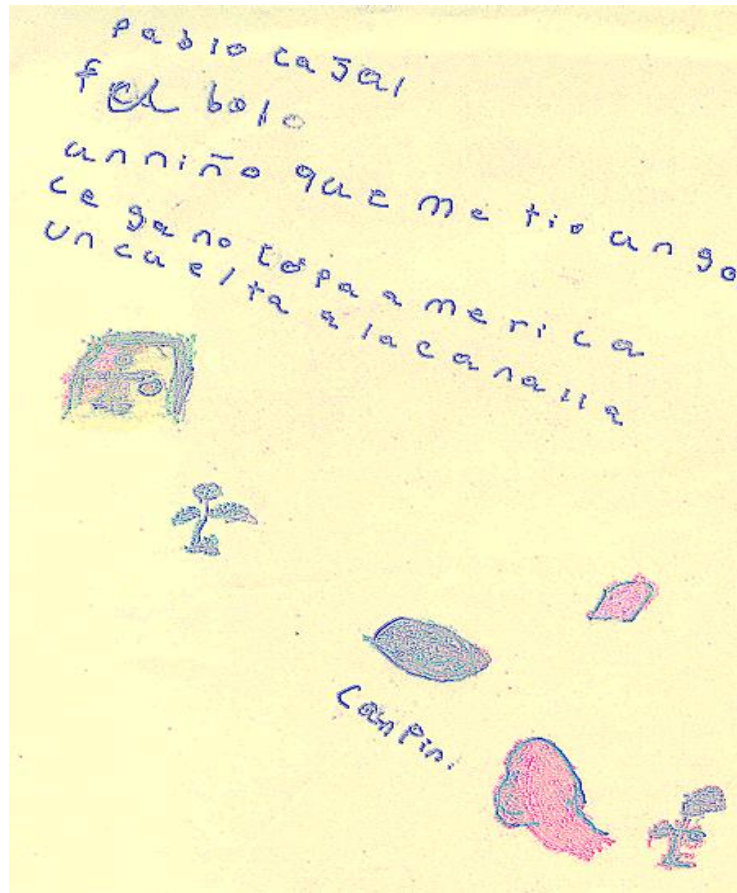 pablo cajal
fel bolo
un niño que me tio un go
ce gano copa america
un cuelta a la canalla
canpin.